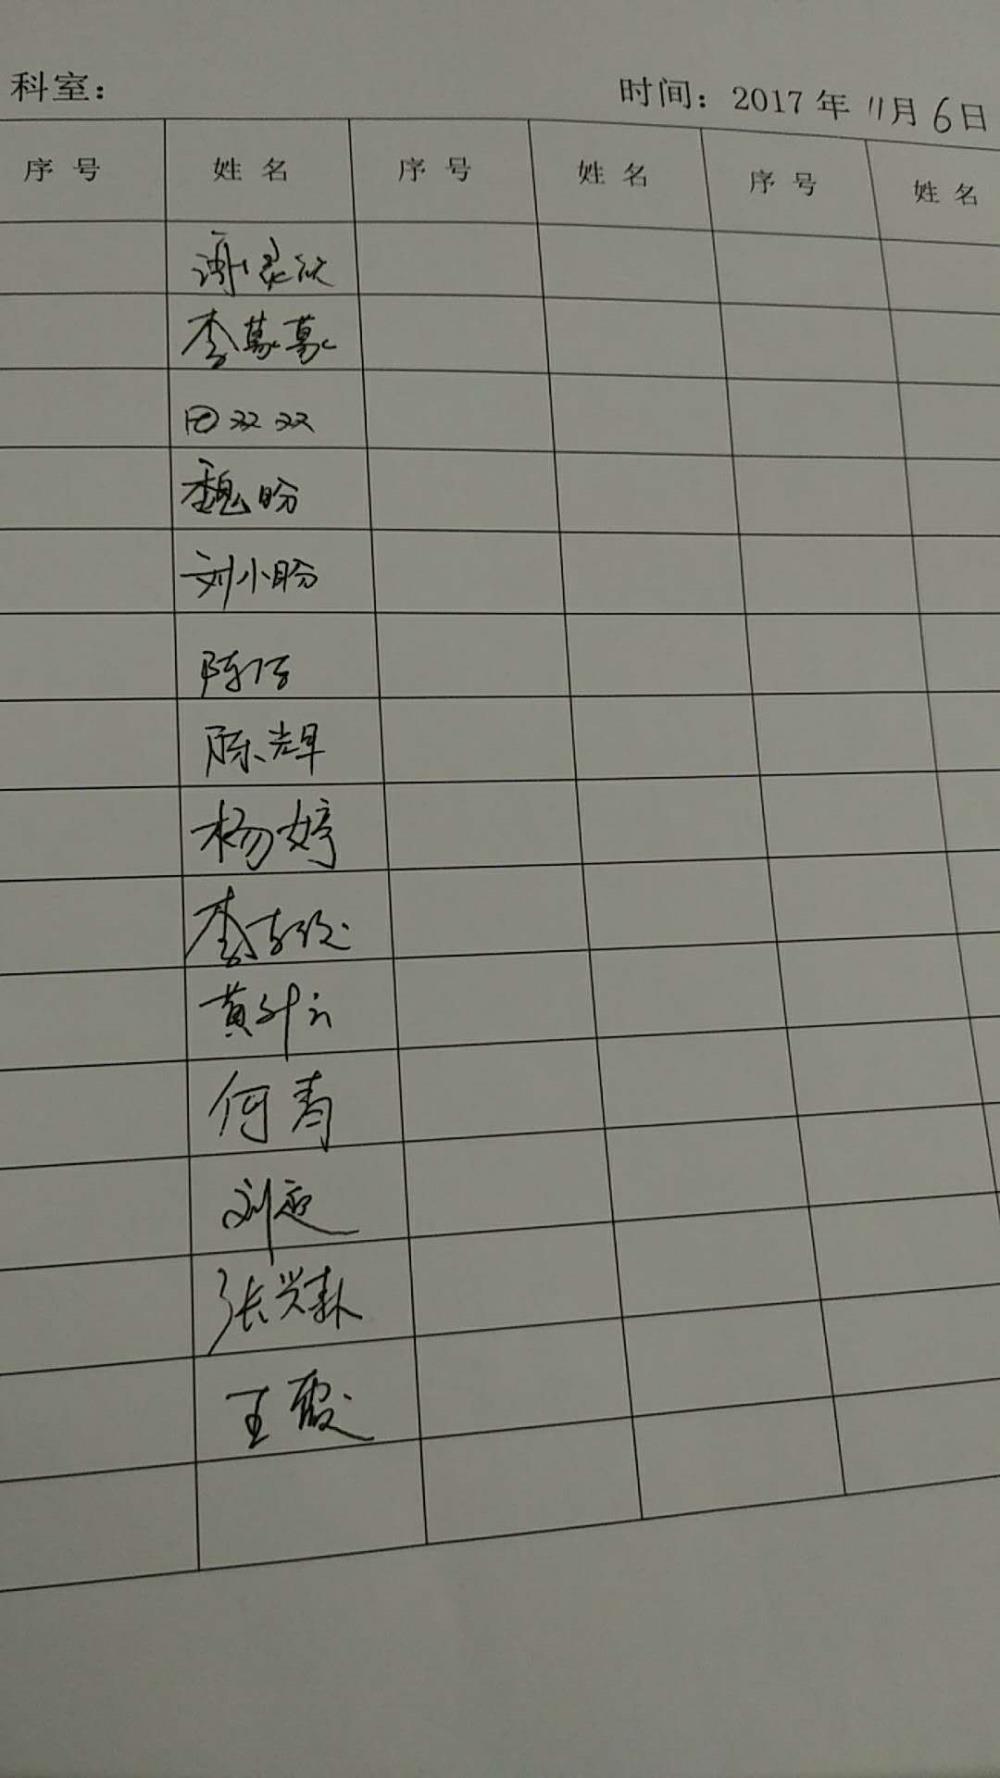 科室： 时间：2017年11月6日
序号 姓名 序号 姓名 序号 姓名
李蔓蔓
田双双
魏盼
刘小盼
陈洁
陈辉
杨婷
李
黄叶
何青
刘
张兴
王霞